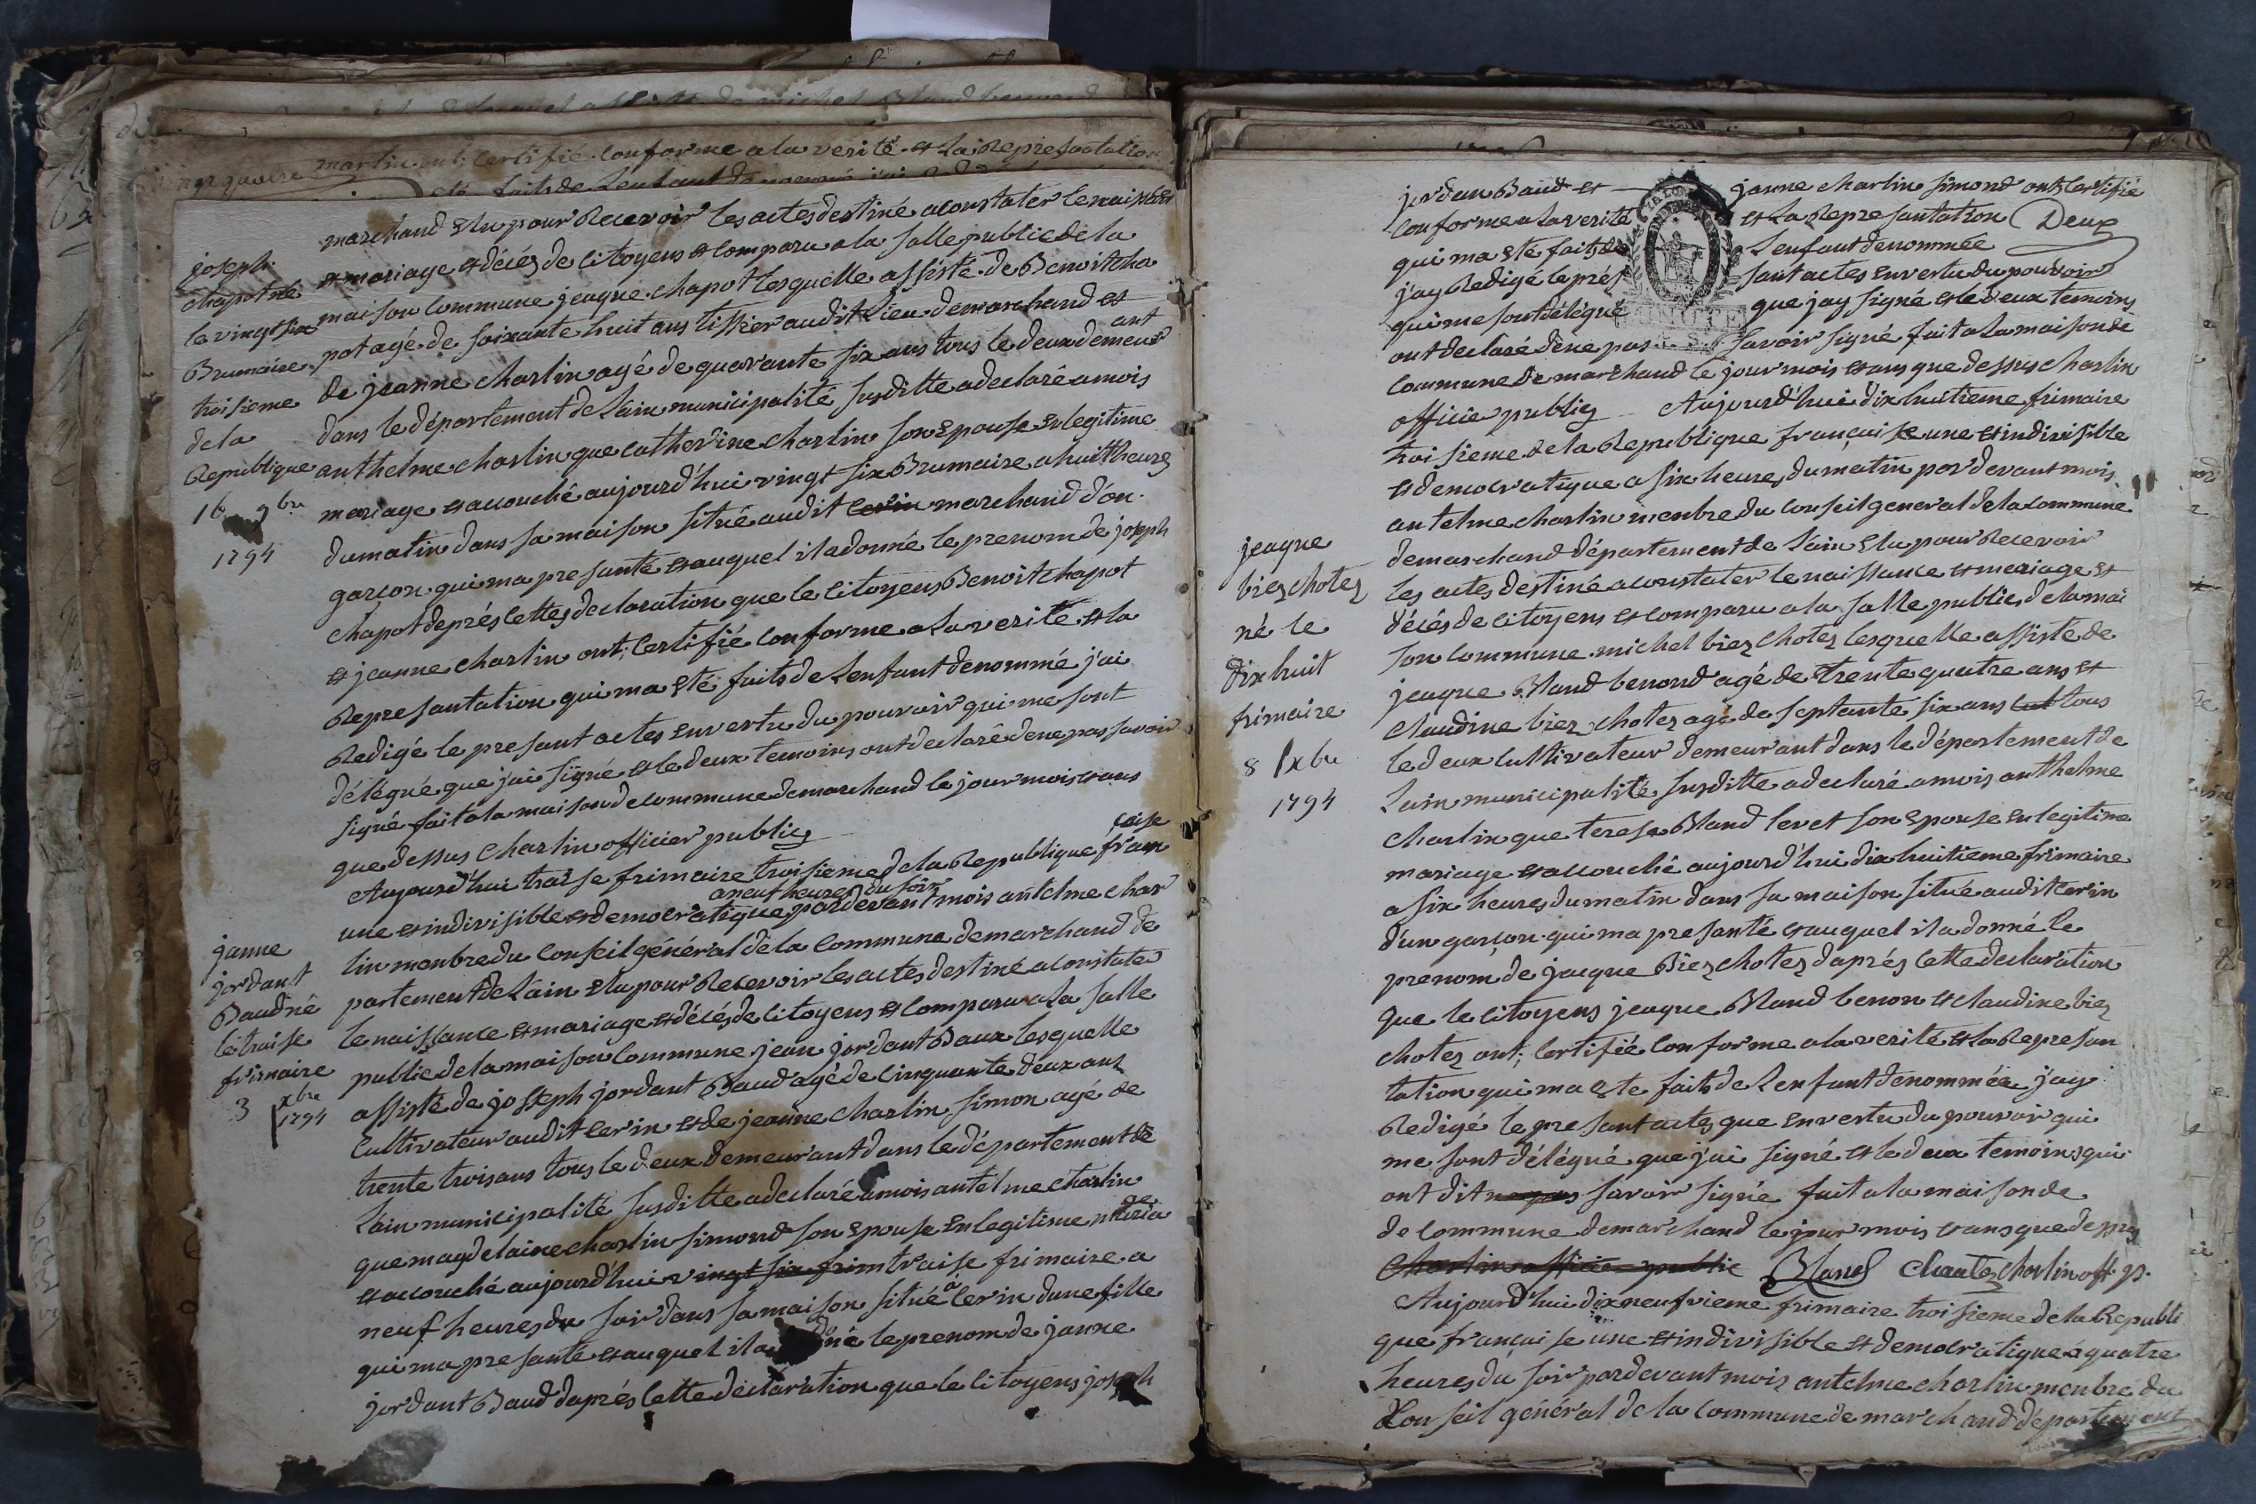 martin ont certifié conforme a la verité et la Represantation
marchand Elu pour Recevoir les actes destiné a constater le naissance
et mariage et décés de citoyens et comparu a la salle public de la
maison commune jeaque chapot lesquelle assisté de Benoit cha
pot agé de soixante huit ans tissier audit Lieu de marchand et
de jeanne charlin agé de quarante six ans tous le deux demeur ant
dans le département de L'ain municipalité susditte a declaré a mois
anthelme charlin que catherine charlin son Epouse En legitime
mariage et accouché aujourd'hui vingt six Brumaire a huit heures
du matin dans sa maison situé audit cerin marchand d'un
garçon qui ma presanté et auquel il a donné le prenom de joseph
chapot deprés cettes declaration que le citoyens Benoit chapot
et jeanne charlin ont certifié conforme a la verité et la
Represantation qui ma Eté faits de L'enfant denommé j'ai
Redigé le presant actes En vertu du pouvoir qui me sont
délégué que j'ai signé et le deux temoins ont declaré de ne pas savoir
signé fait a la maison de commune de marchand le jour mois et ans
que dessus charlin officier public
joseph
chapot né
le vingt six
Brumaire
troisieme
de la
Republique
16 9bre
1794
Aujourd'hui traise frimaire troisieme de la Republique fran caise
une et indivisible et democratique a neuf heures du soir par devant mois antelme char
lin manbre du conseil général de la commune de marchand dé
partement de L'ain Elu pour Recevoir les actes destiné a constater
le naissance et mariage et décés de citoyens et comparu a La salle
public de la maison commune jean jordant Baux lesquelle
assisté de josseph jordant Baud agé de cinquante deux ans
cultivateur audit cerin et de jeanne charlin simon agé de
trente trois ans tous le deux demeurant dans le département de
L'ain municipalité susditte a declaré a mois antelme charlin
que magdelaine charlin simond son Epouse En legitime mariage
et accouché aujourd'hui vingt six frim traise frimaire a
neuf heures du soir dans sa maison situé à cerin d'une fille
qui ma presanté et auquel il a donné le prenom de janne
jordant Baud d'aprés cette declaration que le citoyens joseph
janne
jordant
Baud né
le traise
frimaire
3 xbre
1794
jordan Baud et janne charlin simond ont certifié
conforme a la verité et La Represantation Deux
qui ma Eté faits de L'enfant denommée
j'ay Redigé le prés sant actes En vertu du pouvoir
qui me sont délégué que j'ay signé et le deux temoins
ont declaré de ne pas savoir signé fait a La maison de
commune de marchand le jour mois et ans que dessus charlin
officier public Aujourd'hui dix huitieme frimaire
troisieme de la Republique française une et indivisible
et democratique a six heures du matin par devant mois
antelme charlin menbre du conseil general de la commune
de marchand département de L'ain Elu pour Recevoir
les actes destiné a constater le naissance et mariage et
décés de citoyens et comparu a la salle public de la mai
son commune michel biez chotez lesquelle assisté de
jeaque Bland benond agé de trente quatre ans et
claudine biez chotez agé de septante six ans tous
le deux cultivateur demeurant dans le département de
L'ain municipalité susditte a declaré a mois anthelme
charlin que teresa Bland levet son Epouse En legitime
mariage et accouché aujourd'hui dix huitieme frimaire
a six heures du matin dans sa maison situé audit cerin
d'un garçon qui ma presanté et auquel il a donné le
prenom de jacque Biez chotez d'aprés cette declaration
que le citoyens jeaque Bland benon et claudine biez
chotez ont certifié conforme a la verité et la Represan
tation qui ma Ete faits de L'enfant denommée j'ay
Redigé le presant actes que En vertu du pouvoir qui
me sont délégué que j'ai signé et le deux temoins qui
ont dit ne pas savoir signé fait a la maison de
de commune de marchand le jour mois et ans que dessus
charlin officier public Bland charlin off. p.
jeaque
biez chotez
né le
dix huit
frimaire
8 xbre
1794
Aujourd'hui dix neufvieme frimaire troisieme de la Republi
que française une et indivisible et democratique a quatre
heures du soir par devant mois antelme charlin menbre du
Conseil général de la commune de marchand département